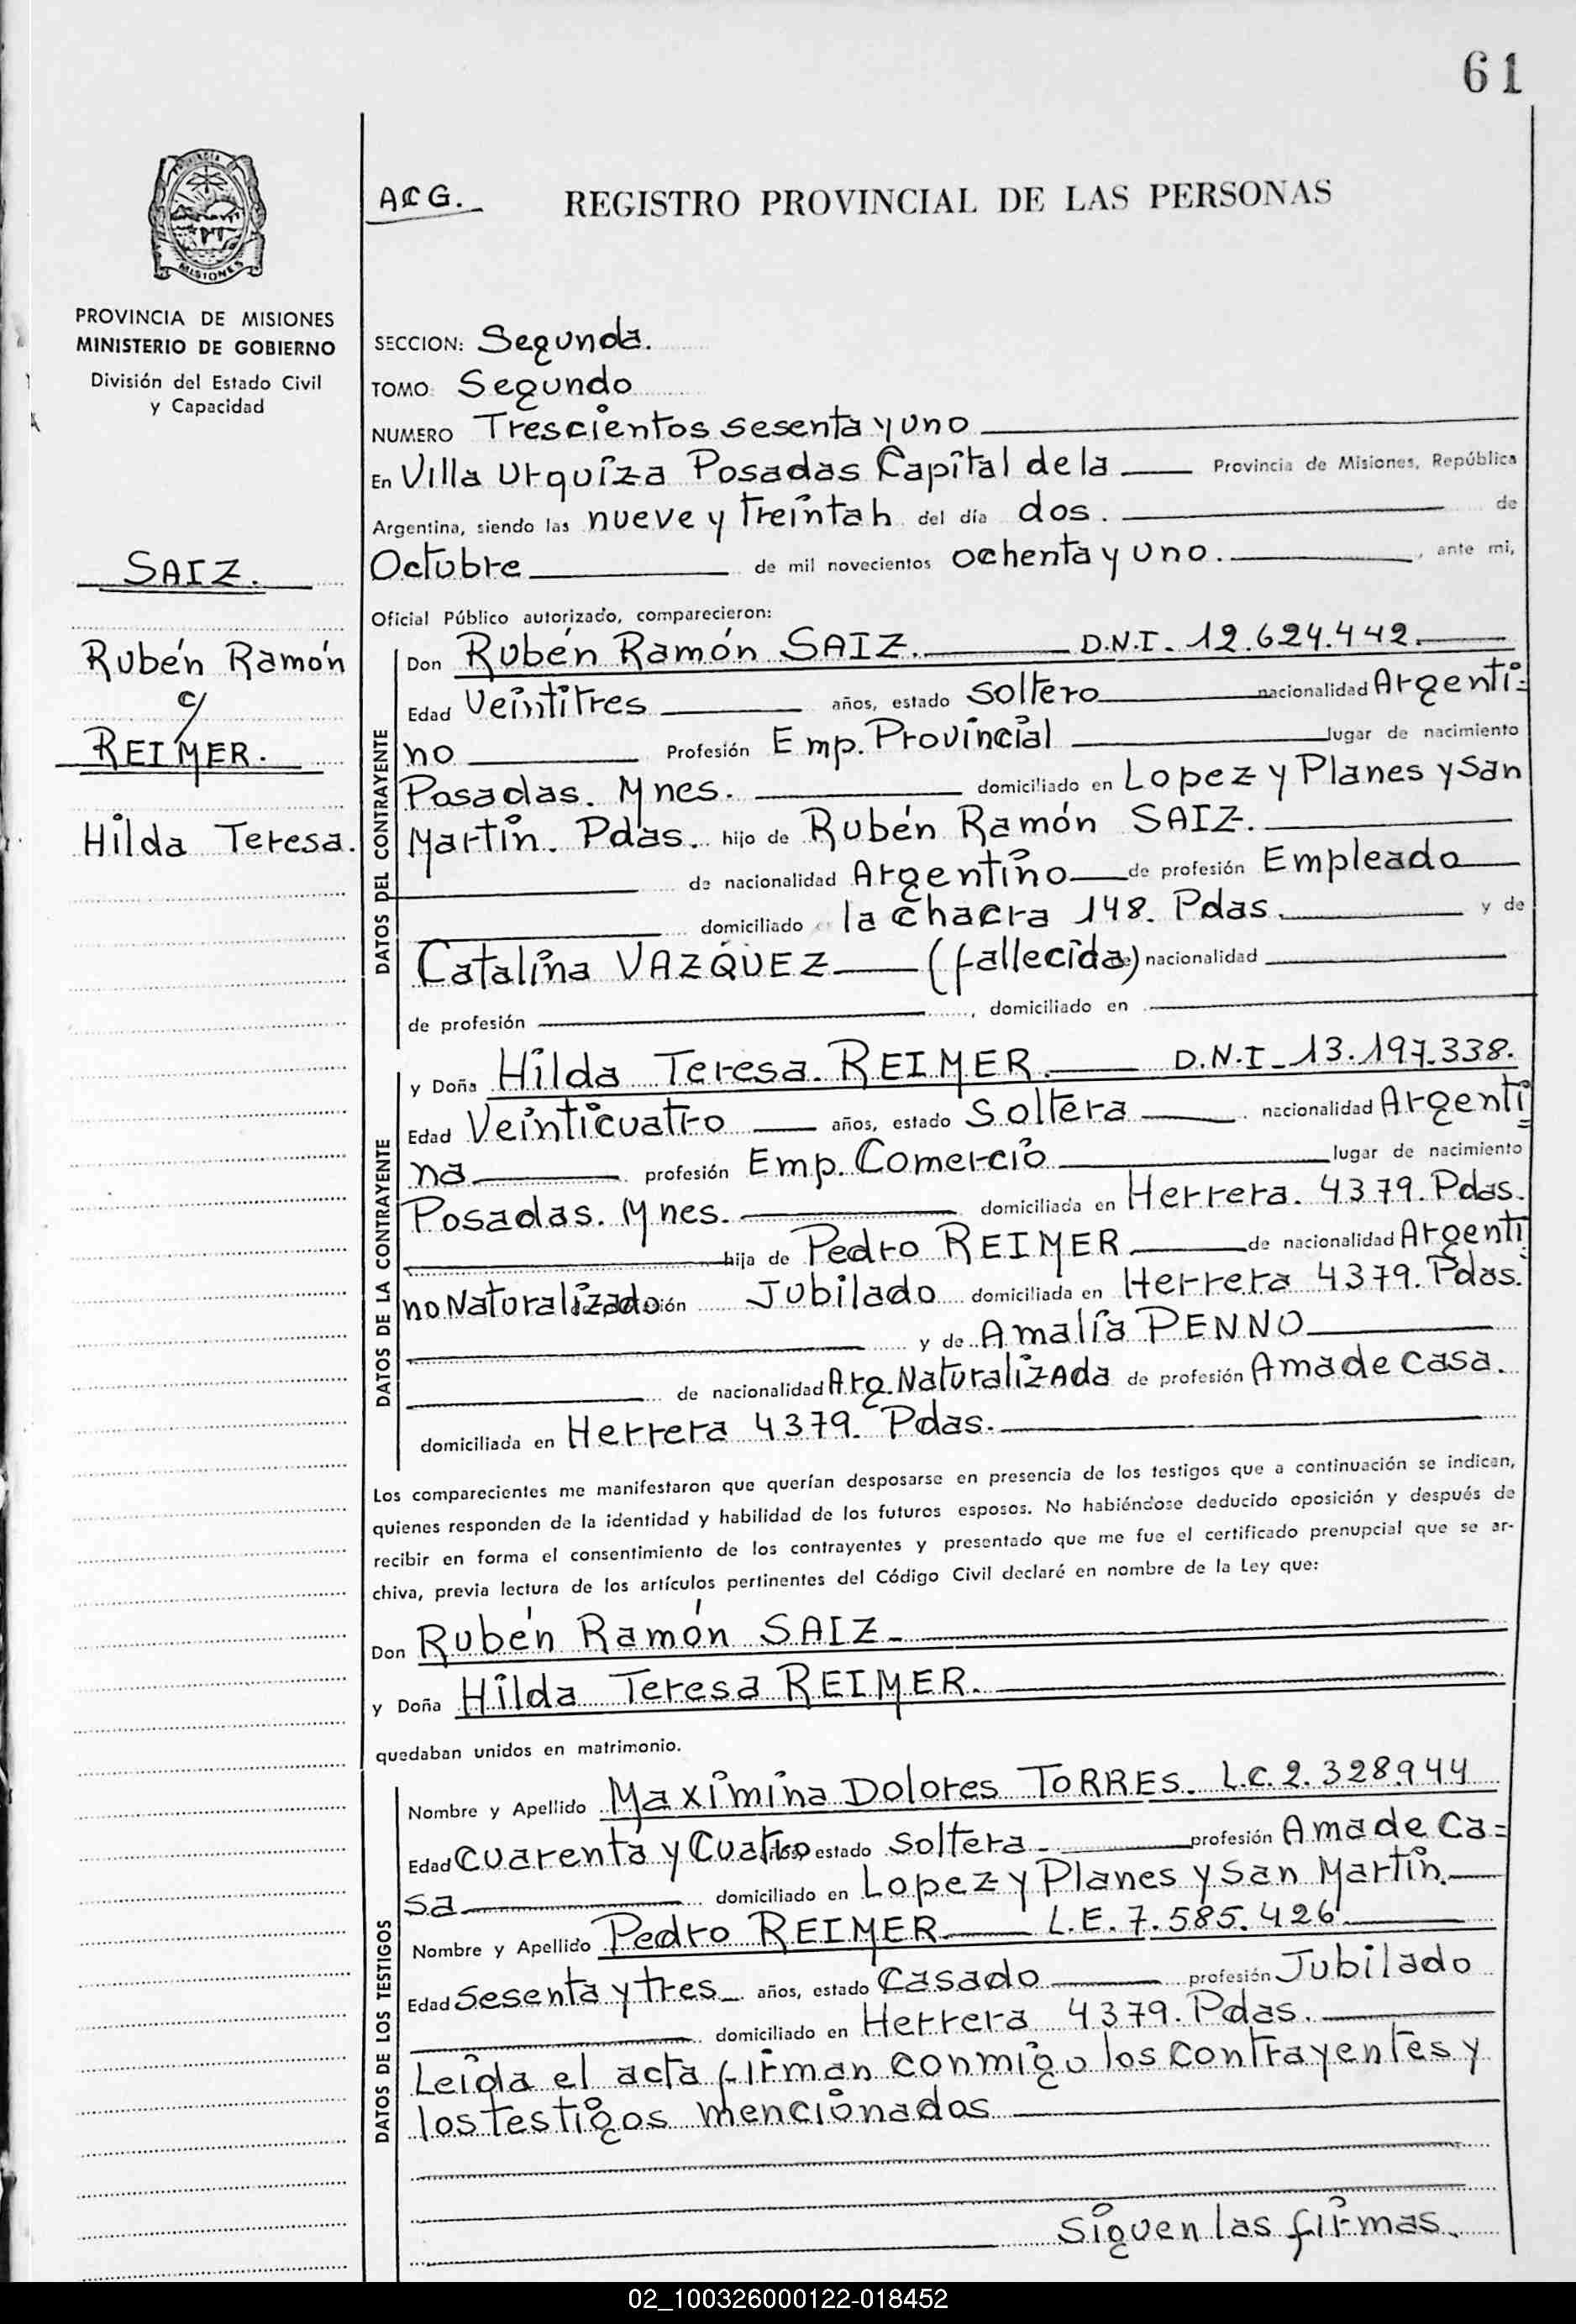 61
PROVINCIA
MISIONES
PROVINCIA DE MISIONES
MINISTERIO DE GOBIERNO
División del Estado Civil
y Capacidad
SAIZ.
Rubén Ramón
c/
REIMER.
Hilda Teresa.
ACG. REGISTRO PROVINCIAL DE LAS PERSONAS
SECCION: Segunda.
TOMO: Segundo
NUMERO Trescientos sesenta y uno
En Villa Urquiza Posadas Capital de la Provincia de Misiones, República
Argentina, siendo las nueve y treinta h. del día dos. de
Octubre de mil novecientos ochenta y uno. , ante mi,
Oficial Público autorizado, comparecieron:
DATOS DEL CONTRAYENTE
Don Rubén Ramón SAIZ. D.N.I. 12.624.442.
Edad Veintitres años, estado Soltero nacionalidad Argenti=
no Profesión Emp. Provincial lugar de nacimiento
Posadas. Mnes. domiciliado en Lopez y Planes y San
Martin. Pdas. hijo de Rubén Ramón SAIZ.
de nacionalidad Argentino de profesión Empleado
domiciliado en la chacra 148. Pdas. y de
Catalina VAZQUEZ (fallecida) nacionalidad
de profesión , domiciliado en
DATOS DE LA CONTRAYENTE
y Doña Hilda Teresa REIMER. D.N.I. 13.197.338.
Edad Veinticuatro años, estado Soltera nacionalidad Argenti=
na profesión Emp. Comercio lugar de nacimiento
Posadas. Mnes. domiciliada en Herrera. 4379. Pdas.
hija de Pedro REIMER de nacionalidad Argenti
no Naturalizado de profesión Jubilado domiciliada en Herrera 4379. Pdas.
y de Amalia PENNO
de nacionalidad Arg. Naturalizada de profesión Ama de casa.
domiciliada en Herrera 4379. Pdas.
Los comparecientes me manifestaron que querían desposarse en presencia de los testigos que a continuación se indican,
quienes responden de la identidad y habilidad de los futuros esposos. No habiéndose deducido oposición y después de
recibir en forma el consentimiento de los contrayentes y presentado que me fue el certificado prenupcial que se ar-
chiva, previa lectura de los artículos pertinentes del Código Civil declaré en nombre de la Ley que:
Don Rubén Ramón SAIZ.
y Doña Hilda Teresa REIMER.
quedaban unidos en matrimonio.
DATOS DE LOS TESTIGOS
Nombre y Apellido Maximina Dolores TORRES. L.C. 2.328.944
Edad Cuarenta y Cuatro años, estado Soltera profesión Ama de Ca=
sa domiciliado en Lopez y Planes y San Martin.
Nombre y Apellido Pedro REIMER L.E. 7.585.426
Edad Sesenta y tres años, estado Casado profesión Jubilado
domiciliado en Herrera 4379. Pdas.
Leida el acta firman conmigo los contrayentes y
los testigos mencionados
Siguen las firmas.
02_100326000122-018452